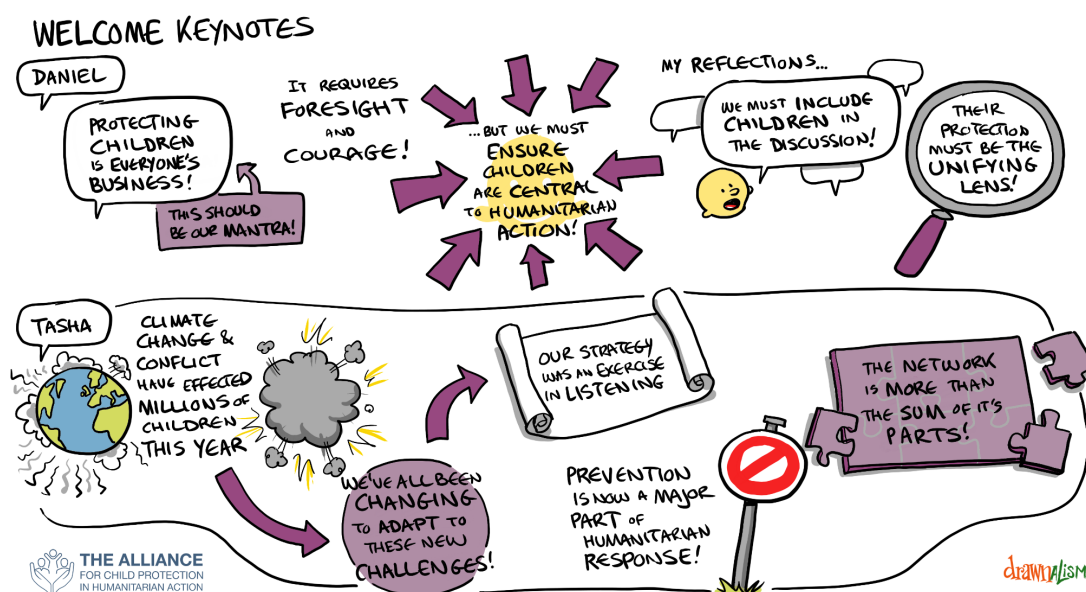 WELCOME KEYNOTES
DANIEL
PROTECTING
CHILDREN
IS EVERYONE'S
BUSINESS!
THIS SHOULD
BE OUR MANTRA!
IT REQUIRES
FORESIGHT
AND
COURAGE!
...BUT WE MUST
ENSURE
CHILDREN
ARE CENTRAL
TO HUMANITARIAN
ACTION!
MY REFLECTIONS...
WE MUST INCLUDE
CHILDREN IN
THE DISCUSSION!
THEIR
PROTECTION
MUST BE THE
UNIFYING
LENS!
TASHA
CLIMATE
CHANGE &
CONFLICT
HAVE EFFECTED
MILLIONS OF
CHILDREN
THIS YEAR
WE'VE ALL BEEN
CHANGING
TO ADAPT TO
THESE NEW
CHALLENGES!
OUR STRATEGY
WAS AN EXERCISE
IN LISTENING
PREVENTION
IS NOW A MAJOR
PART OF
HUMANITARIAN
RESPONSE!
THE NETWORK
IS MORE THAN
THE SUM OF IT'S
PARTS!
THE ALLIANCE
FOR CHILD PROTECTION
IN HUMANITARIAN ACTION
drawnALISM